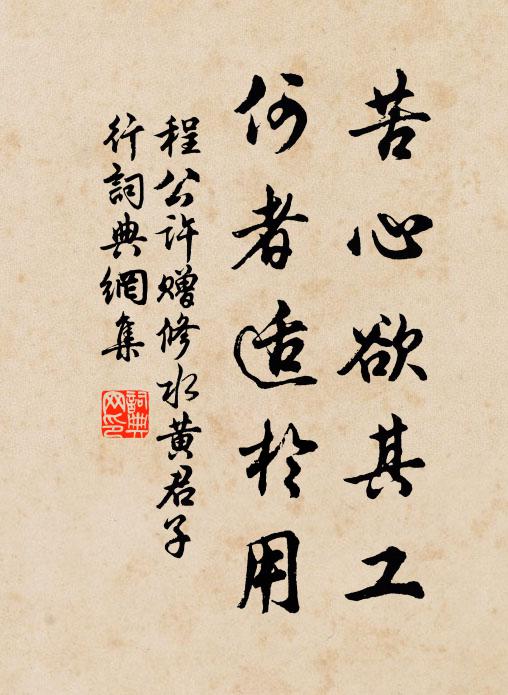 苦心欲其工
何者适於用
程公许赠修水黄君子
行詞典網集
詞典
网印